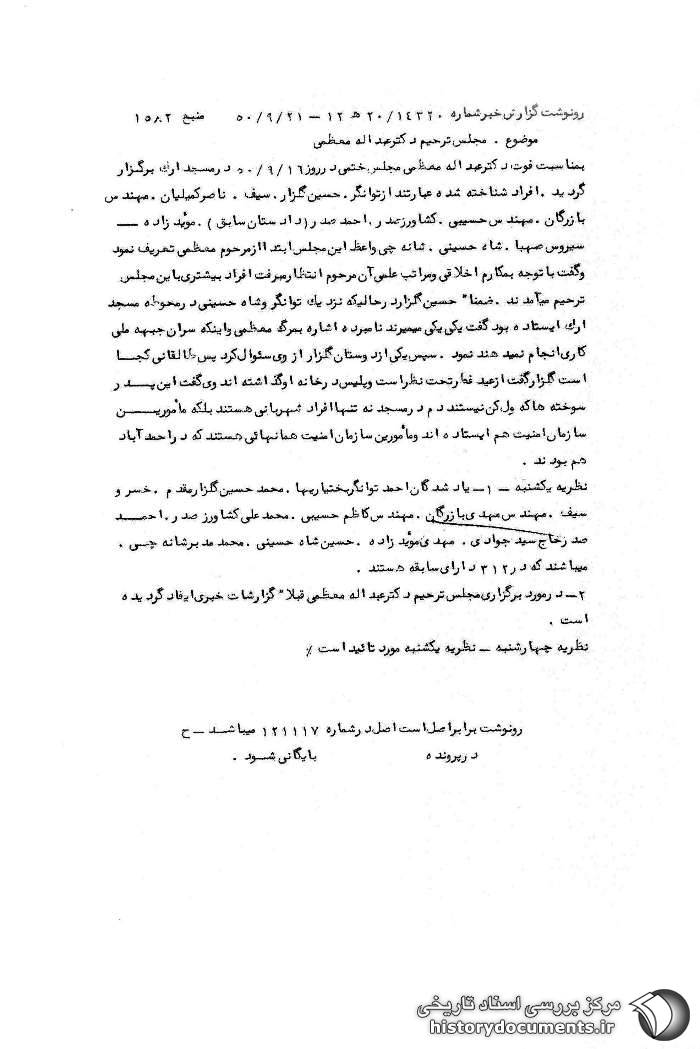 رونوشت گزارش خبر شماره ۲۰/۱۴۳۲۰ ه ۱۲ – ۵۰/۹/۲۱ منبع ۱۵۸۲
موضوع . مجلس ترحیم دکتر عبداله معظمی
بمناسبت فوت دکتر عبداله معظمی مجلس ختمی در روز ۵۰/۹/۱۶ در مسجد ارك برگزار
گردید . افراد شناخته شده عبارتند از توانگر . حسین گلزار . سیف . ناصر کمیلیان . مهندس
بازرگان . مهندس حسیبی . کشاورز صدر . احمد صدر (دادستان سابق ) . موٌید زاده —
سیروس صهبا . شاه حسینی . شانه چی واعظ این مجلس ابتدا از مرحوم معظمی تعریف نمود
وگفت با توجه بمکارم اخلاقی ومراتب علمی آن مرحوم انتظار میرفت افراد بیشتری باین مجلس
ترحیم میآمدند . ضمنا" حسین گلزار در حالیکه نزدیك توانگر وشاه حسینی در محوطه مسجد
ارك ایستاده بود گفت یکی یکی میمیرند نامبرده اشاره بمرگ معظمی واینکه سران جبهه ملی
کاری انجام نمیدهند نمود . سپس یکی از دوستان گلزار از وی سئوال کرد پس طالقانی کجا
است گلزار گفت از عید فطر تحت نظر است وپلیس در خانه او گذاشته اند وی گفت این پدر
سوخته ها که ول کن نیستند دم در مسجد نه تنها افراد شهربانی هستند بلکه ماٌموریــن
سازمان امنیت هم ایستاده اند وماٌمورین سازمان امنیت همانهائی هستند که در احمد آباد
هم بودند .
نظریه یکشنبه – ۱– یاد شدگان احمد توانگر بختیاریها . محمد حسین گلزار مقدم . خسرو
سیف . مهندس مهدی بازرگان . مهندس کاظم حسیبی . محمد علی کشاورز صدر . احمــد
صدر حاج سید جوادی . مهدی موٌید زاده . حسین شاه حسینی . محمد مدبر شانه چــی .
میباشند که در ۳۱۲ دارای سابقه هستند .
۲– در مورد برگزاری مجلس ترحیم دکتر عبداله معظمی قبلا" گزارشات خبری ایفاد گردیده
است .
نظریه چهارشنبه – نظریه یکشنبه مورد تائید است /
رونوشت برابر اصل است اصل در شماره ۱۲۱۱۱۷ میباشــد – ح
در پرونده بایگانی شــود .
مرکز بررسی اسناد تاریخی
historydocuments.ir